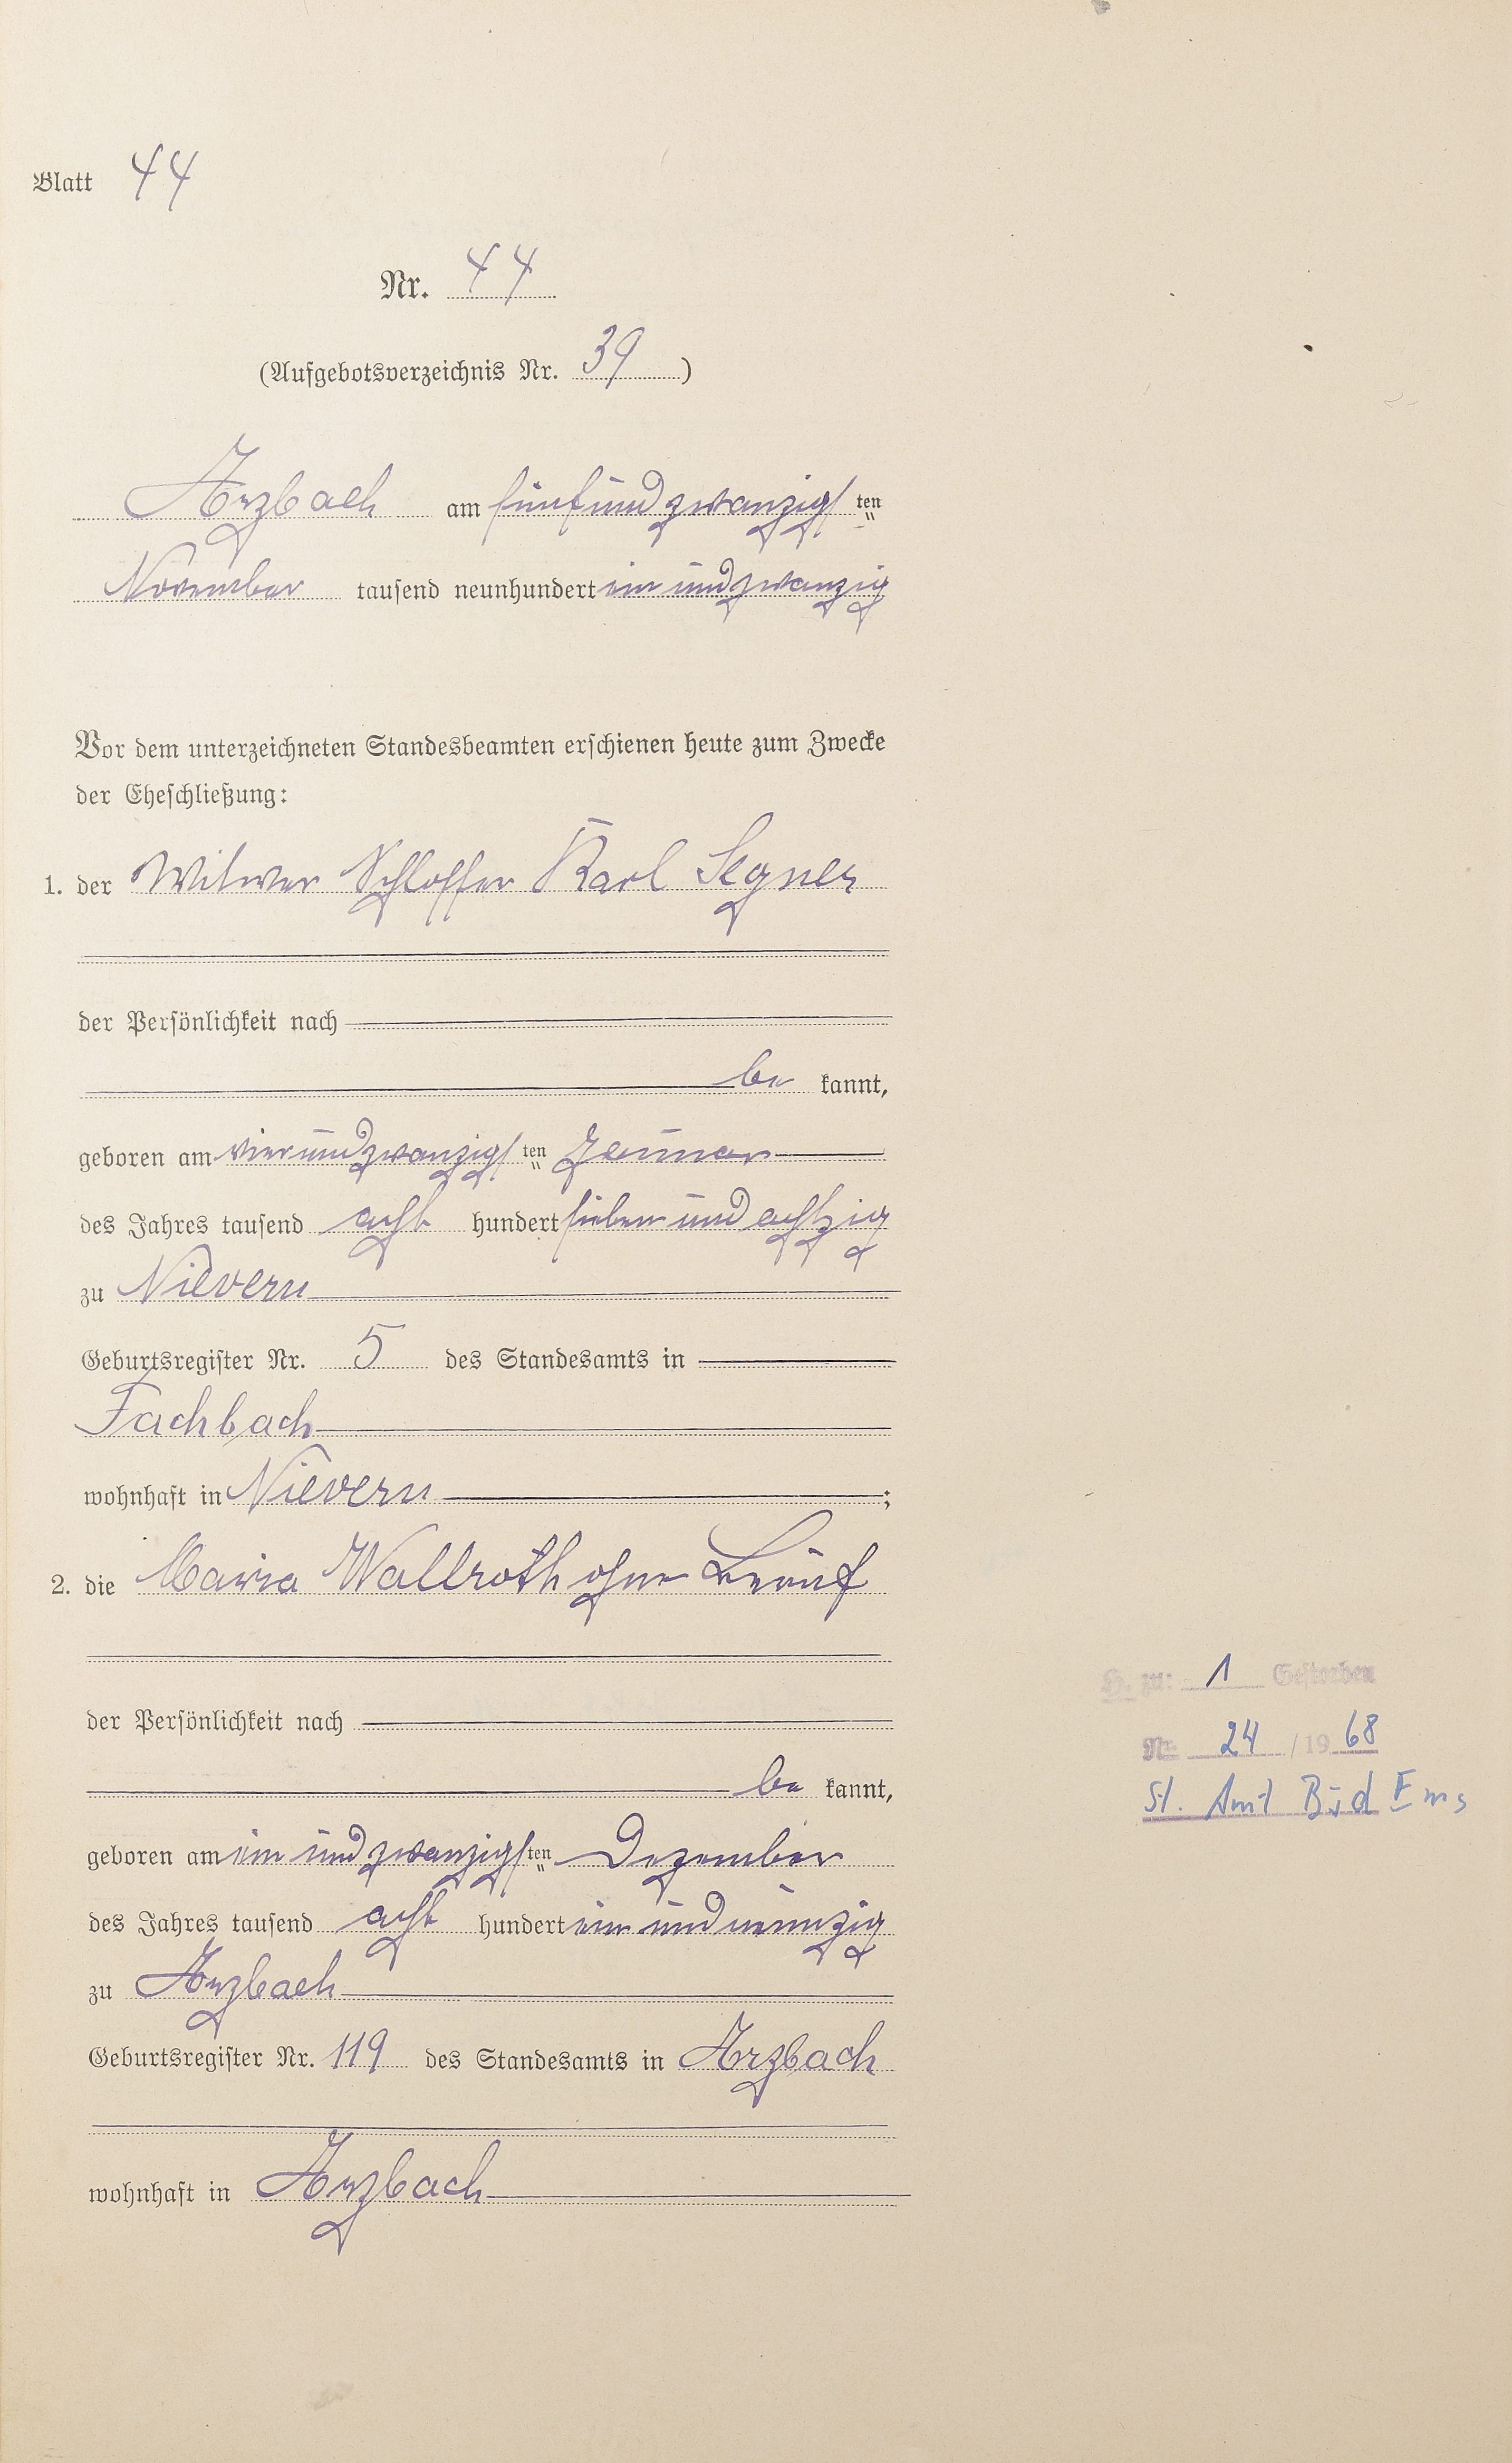 Blatt 44
Nr. 44
(Aufgebotsverzeichnis Nr. 39)
Arzbach am fünfundzwanzigsten
November tausend neunhundert ein und zwanzig
Vor dem unterzeichneten Standesbeamten erschienen heute zum Zwecke
der Eheschließung:
1. der Witwer Schlosser Karl Segner
der Persönlichkeit nach
be kannt,
geboren am vierundzwanzigsten Januar
des Jahres tausend acht hundert sieben und achtzig
zu Nievern
Geburtsregister Nr. 5 des Standesamts in
Fachbach
wohnhaft in Nievern;
2. die Maria Wallroth ohne Beruf
der Persönlichkeit nach
be kannt,
geboren am ein und zwanzigsten Dezember
des Jahres tausend acht hundert ein und neunzig
zu Arzbach
Geburtsregister Nr. 119 des Standesamts in Arzbach
wohnhaft in Arzbach
H. zu: 1 Gestorben
Nr. 24 / 1968
St. Amt Bad Ems